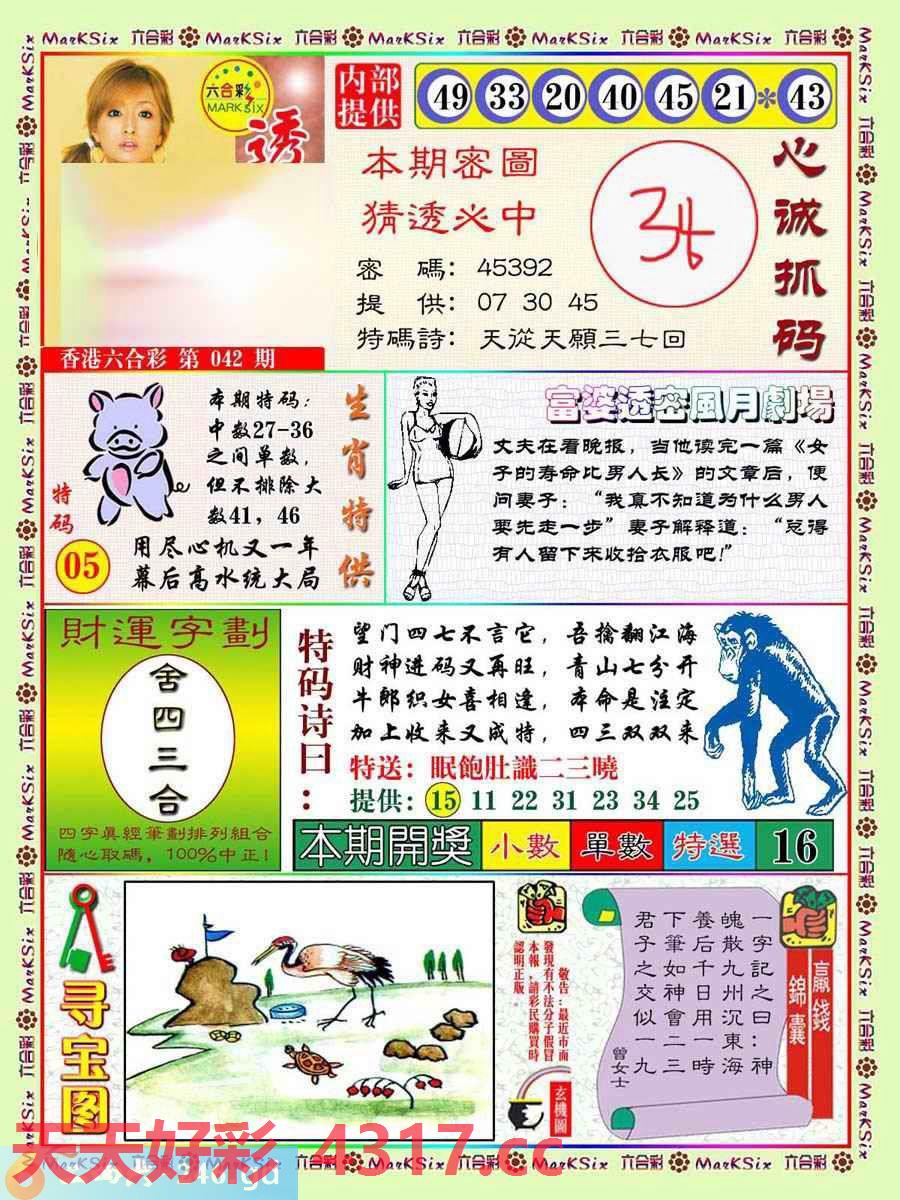 MarKSix 六合彩 MarKSix 六合彩 MarKSix 六合彩 MarKSix 六合彩 MarKSix 六合彩
六合彩
MARKSIX
诱
内部
提供
49 33 20 40 45 21 * 43
本期密圖
猜透必中
密 碼: 45392
提 供: 07 30 45
特碼詩: 天從天願三七回
心诚抓码
香港六合彩 第 042 期
本期特码:
中数27-36
之间单数,
但不排除大
数41, 46
特码
05
用尽心机又一年
幕后高水统大局
生肖特供
富婆透密風月劇場
丈夫在看晚报, 当他读完一篇《女
子的寿命比男人长》的文章后, 便
问妻子: “我真不知道为什么男人
要先走一步” 妻子解释道: “总得
有人留下来收拾衣服吧!”
財運字劃
舍四三合
四字真經筆劃排列組合
隨心取碼, 100%中正!
特码诗曰:
望门四七不言它, 吾擒翻江海
财神进码又再旺, 青山七分开
牛郎织女喜相逢, 本命是注定
加上收来又成特, 四三双双来
特送: 眠飽肚識二三曉
提供: 15 11 22 31 23 34 25
本期開獎 小數 單數 特選 16
寻宝图
敬告:最近市面
發現有不法分子假冒
本報,請彩民購買時
認明正版。
玄機圖
一字記之曰:神
魄散九州沉東海
養后千日用一時
下筆如神會二三
君子之交似一九
曾女士
贏錢
錦囊
天天好彩 4317.cc
MarKSix 六合彩 MarKSix 六合彩